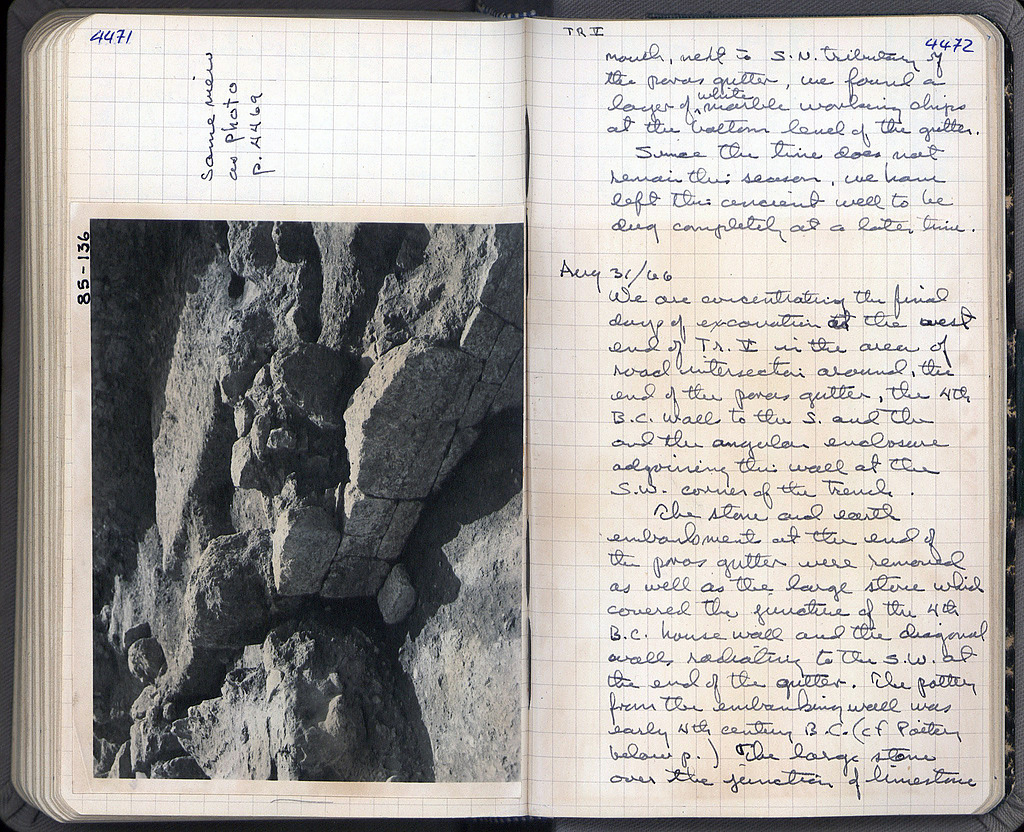 4471
Same view
as Photo
p. 4469
85-136
TR V
4472
mouth, next to S.N. tributary of
the poros gutter, we found a
layer of white marble working chips
at the bottom level of the gutter.
Since the time does not
remain this season, we have
left this ancient well to be
dug completely at a later time.
Aug 31/66
We are concentrating the final
days of excavation at the west
end of Tr. V in the area of
road intersection around, the
end of the poros gutter, the 4th
B.C. wall to the S. and the
and the angular enclosure
adjoining this wall at the
S.W. corner of the Trench.
The stone and earth
embankment at the end of
the poros gutter were removed
as well as the large stone which
covered the juncture of the 4th
B.C. house wall and the diagonal
wall, radiating to the S.W. at
the end of the gutter. The pottery
from the embanking wall was
early 4th century B.C. (cf Pottery
below p. ) The large stone
over the junction of limestone